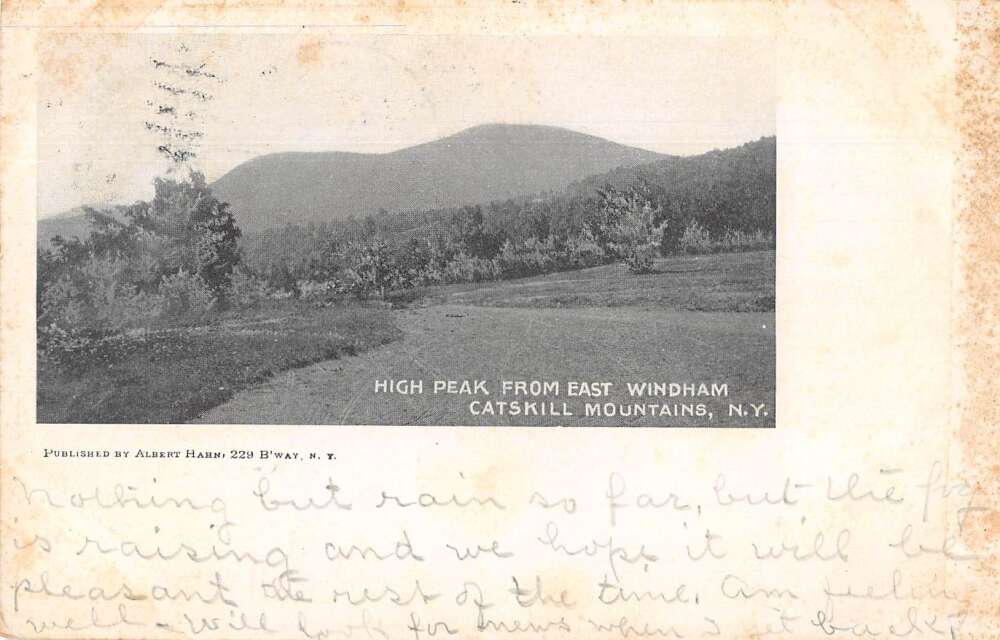 HIGH PEAK FROM EAST WINDHAM
CATSKILL MOUNTAINS, N.Y.
PUBLISHED BY ALBERT HAHN, 229 B'WAY, N. Y.
Nothing but rain so far, but the fog
is raising and we hope it will be
pleasant the rest of the time. Am feeling
well - Will look for news when I get back